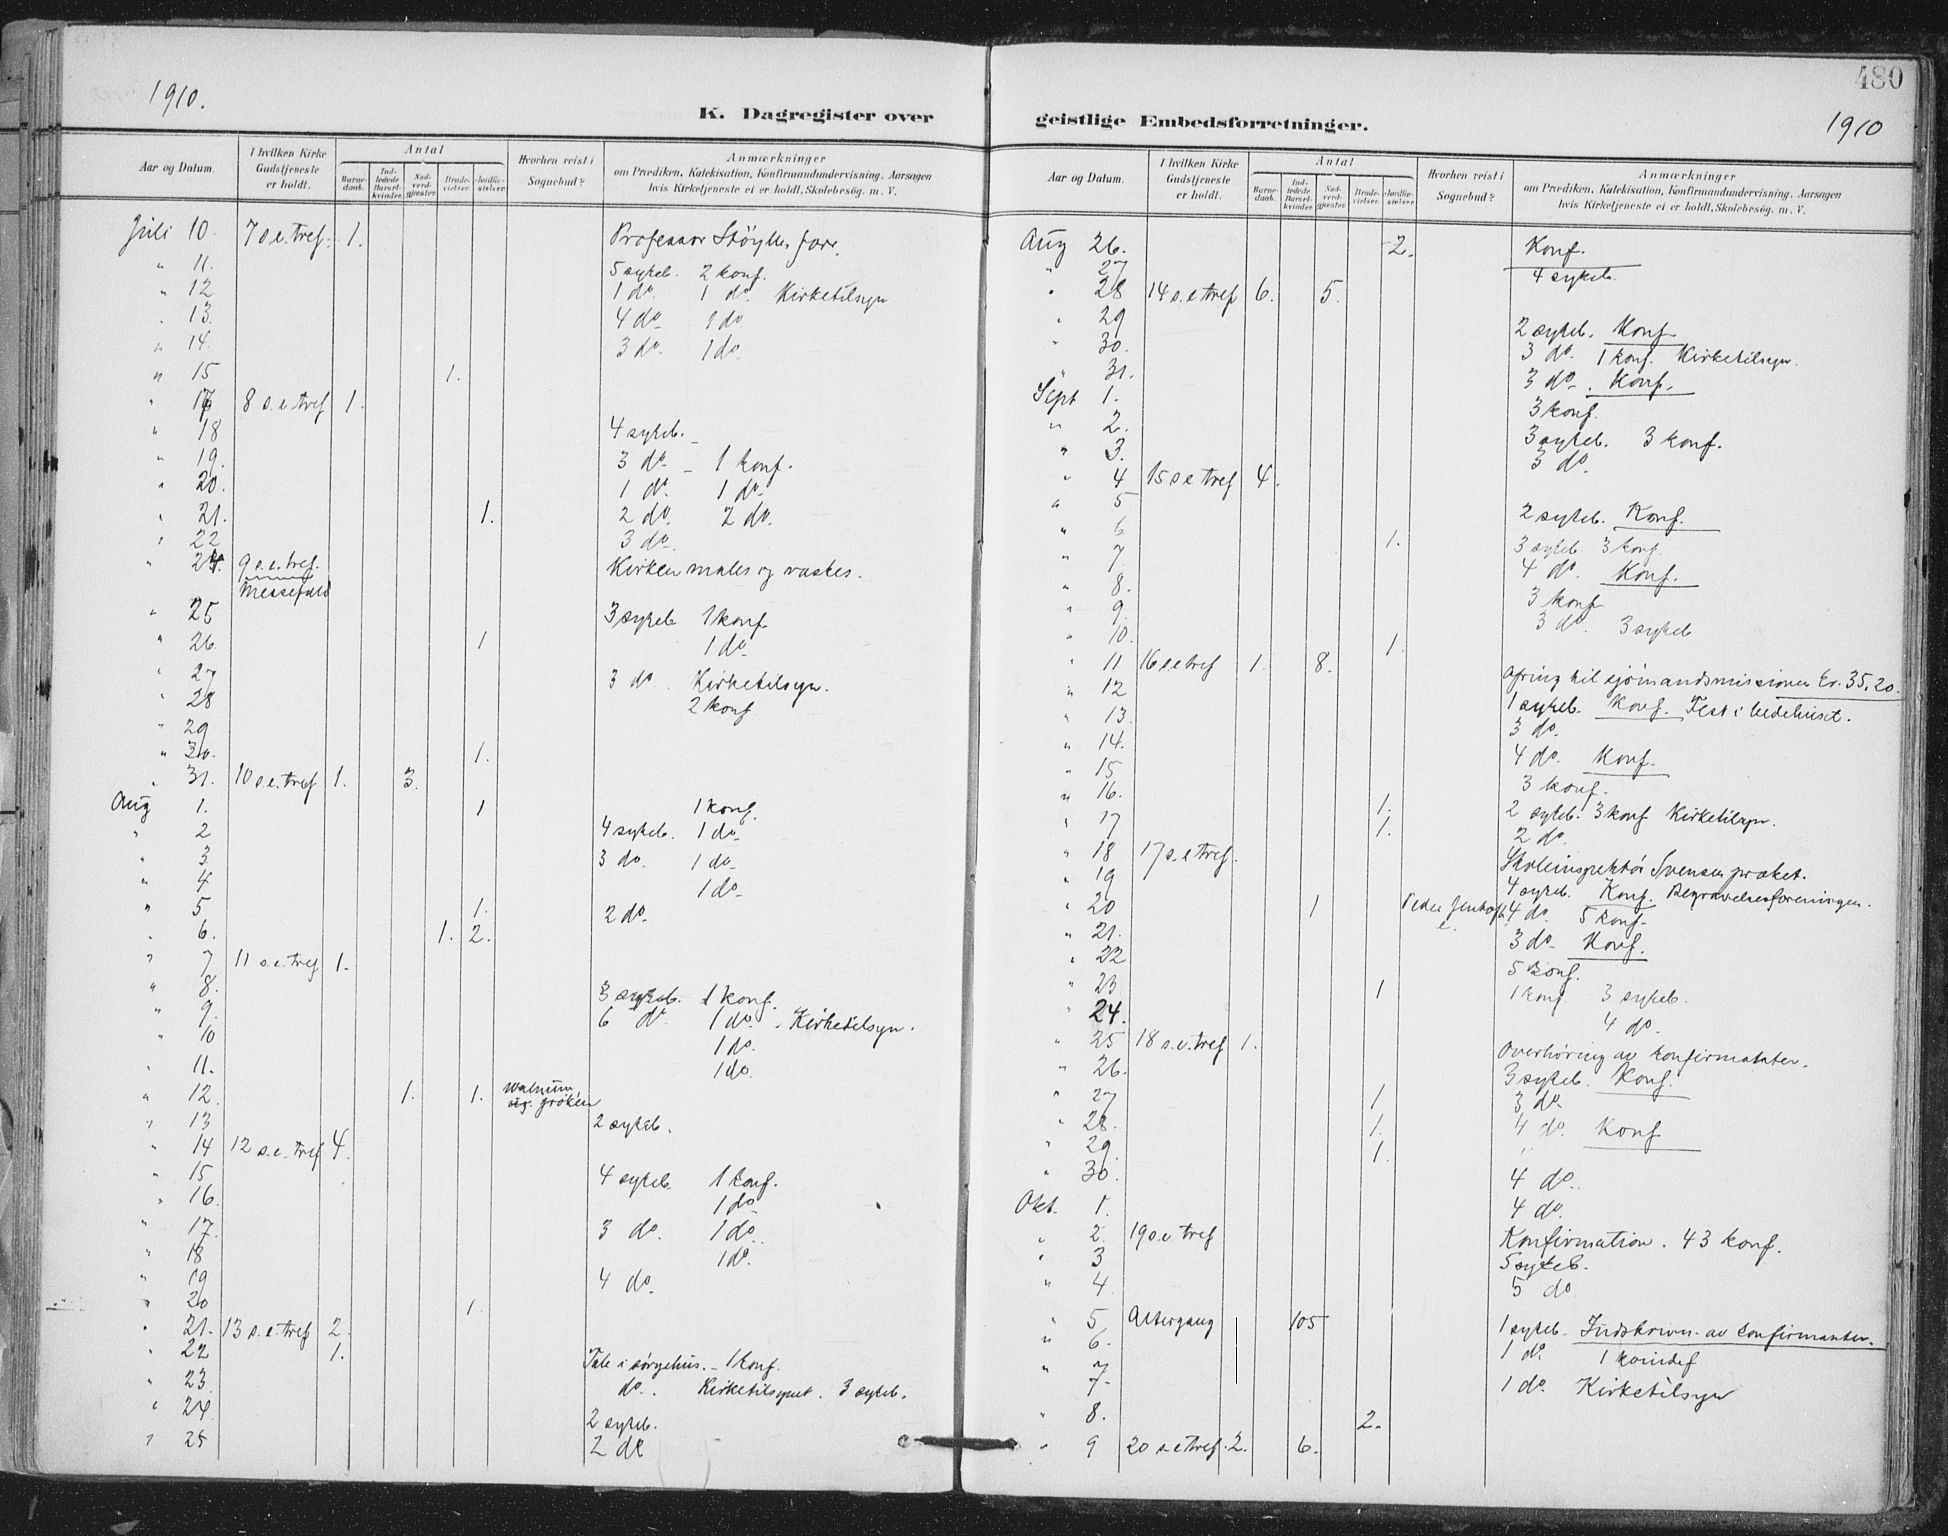 480
1910.
1910
K. Dagregister over
geistlige Embedsforretninger.
Aar og Datum.
I hvilken Kirke Gudstjeneste er holdt.
Antal
Barnedaab.
Indledede Barselkvinder.
Nadverdgjester.
Brudevielser.
Jordfæstelser.
Hvorhen reist i Sognebud?
Anmærkninger
om Prædiken, Katekisation, Konfirmandundervisning, Aarsagen
hvis Kirketjeneste ei er holdt, Skolebesøg. m. V.
Juli 10. 7 s.e. tref. 1. Professor
" 11. 5 sykeb. 2 konf.
" 12 1 do. 1 do. Kirketilsyn
" 13. 4 do. 1 do
" 14. 3 do. 1 do.
" 15 1.
" 17 8 s.e. tref 1.
" 18 4 sykeb.
" 19. 3 do. 1 konf.
" 20. 1 do. 1 do.
" 21. 1. 2 do. 2 do.
" 22 3 do.
" 24. 9 s.e. tref. Kirken males og vaskes.
Messefald
" 25 3 sykeb 1 konf
" 26. 1 1 do.
" 27 3 do. Kirketilsyn.
" 28 2 konf
" 29
" 30. 1.
" 31. 10 s.e. tref 1. 3.
Aug 1. 1 1 konf.
" 2 4 sykeb. 1 do.
" 3. 3 do. 1 do.
" 4 1 do.
" 5 1. 2 do.
" 6. 1. 2.
" 7 11 s.e. tref 1.
" 8. 3 sykeb. 1 konf.
" 9. 6 do. 1 do. Kirketilsyn.
" 10 1 do.
" 11. 1 do.
" 12. 1. 1.
" 13 2 sykeb.
" 14 12 s.e. tref 4.
" 15 4 sykeb 1 konf.
" 16. 1 do
" 17. 3 do. 1 do.
" 18 1 do.
" 19 4 do.
" 20 1.
" 21. 13 s.e. tref 2.
" 22 1. Tale i sørgehus. - 1 konf.
" 23. do. Kirketilsynet. 3 sykeb.
" 24. 2 sykeb.
" 25 2 do
Aar og Datum.
I hvilken Kirke Gudstjeneste er holdt.
Antal
Barnedaab.
Indledede Barselkvinder.
Nadverdgjester.
Brudevielser.
Jordfæstelser.
Hvorhen reist i Sognebud?
Anmærkninger
om Prædiken, Katekisation, Konfirmandundervisning, Aarsagen
hvis Kirketjeneste ei er holdt, Skolebesøg. m. V.
Aug 26. 2. Konf.
" 27 4 sykeb
" 28 14 s.e tref 6. 5.
" 29 2 sykeb. Konf
" 30. 3 do. 1 konf. Kirketilsyn.
" 31. 3 do. Konf.
Sept 1. 3 konf.
" 2. 3 sykeb. 3 konf.
" 3. 3 do.
" 4 15 s e tref 4.
" 5 2 sykeb. Konf.
" 6 1. 3 sykeb. 3 konf.
" 7 4 do. Konf.
" 8. 3 konf
" 9. 3 do. 3 sykeb
" 10. 1.
" 11 16 s.e tref 1. 8. Ofring til sjømandsmissionen kr. 35,20.
" 12 1 sykeb. Konf. Fest i bedehuset.
" 13. 3 do.
" 14. 4 do. Konf.
" 15 3 konf.
" 16. 1. 2 sykeb. 3 konf Kirketilsyn.
" 17 1. 2 do.
" 18 17 s.e tref. Skoleinspektør Svensen præket.
" 19 4 sykeb. Konf. Begravelsesforeningen.
" 20 1 Peder 4 do. 5 konf.
" 21. 3 do. Konf.
" 22 5 konf.
" 23 1 1 konf 3 sykeb.
" 24. 4 do.
" 25 18 s.e. tref 1. Overhøring av konfirmanter.
" 26. 3 sykeb. Konf.
" 27 1 3 do.
" 28. 1. 4 do. Konf
" 29. 1.
" 30. 4 do.
Okt. 1. 4 do.
" 2. 19 s.e tref Konfirmation. 43 konf.
" 3 5 sykeb.
" 4. 5 do
" 5 Altergang 105 1 sykeb. Indskrivn. av konfirmanter.
" 6. 1 do.
" 7 1 do. Kirketilsyn
" 8. 2.
" 9 20 s.e tref. 2. 6.